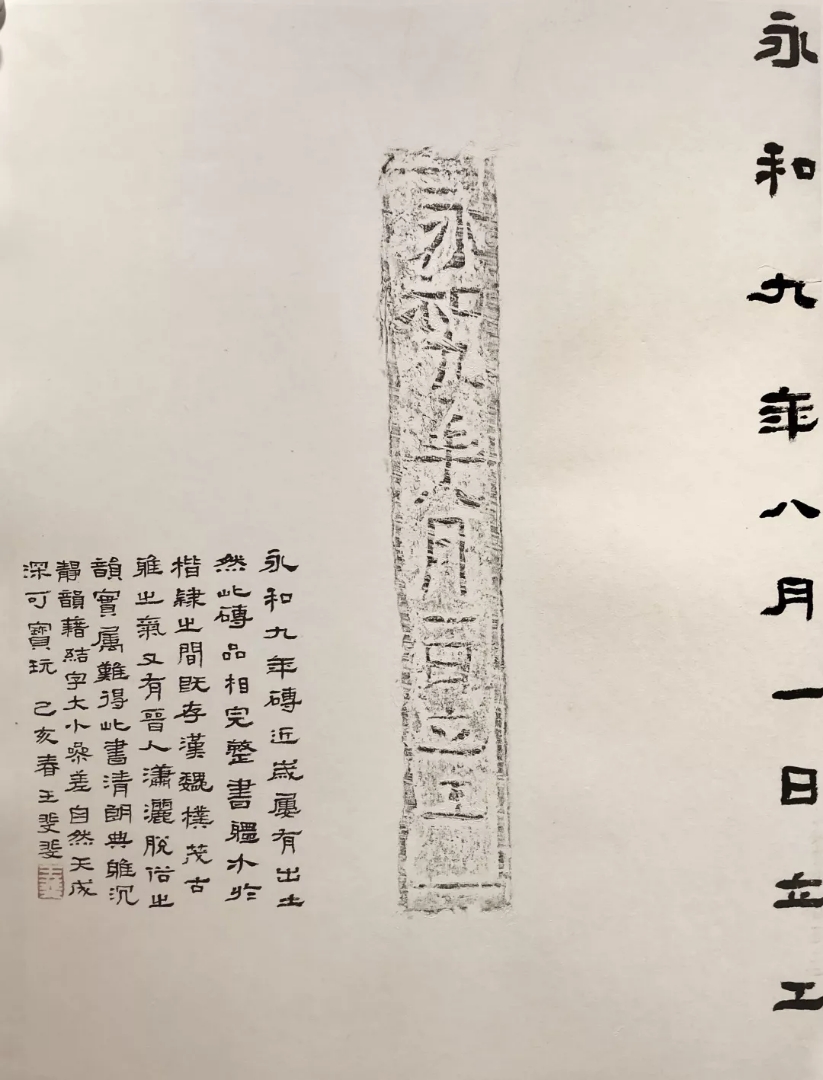 永和九年八月一日立工
永和九年八月一日立工
永和九年磚近歲屢有出土
然此磚品相完整書體介於
楷隸之間既存漢魏樸茂古
雅之氣又有晉人瀟灑脫俗之
韻實屬難得此書清朗典雅沉
靜韻藉結字大小參差自然天成
深可寶玩 己亥春王斐斐